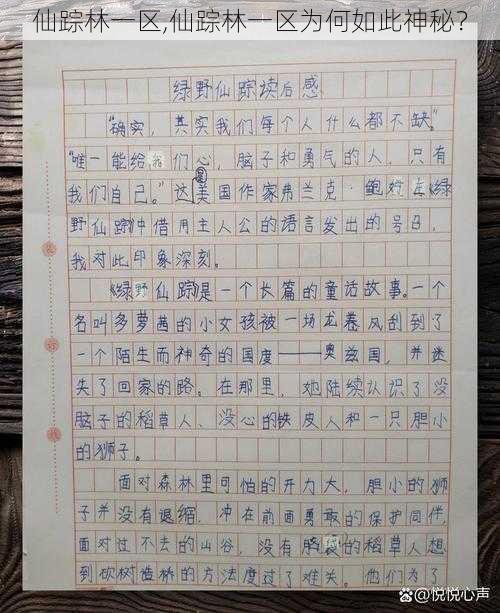 仙踪林一区,仙踪林一区为何如此神秘?
绿野仙踪读后感
"确实,其实我们每个人什么都不缺。"
"唯一能给我们心,脑子和勇气的人,只有
我们自己。"这是美国作家弗兰克·鲍姆在《绿
野仙踪》中借用主人公的语言发出的号召,
我对此印象深刻。
《绿野仙踪》是一个长篇的童话故事。一个
名叫多萝茜的小女孩被一场龙卷风刮到了
一个陌生而神奇的国度——奥兹国,并迷
失了回家的路。在那里,她陆续认识了没
脑子的稻草人、没心的铁皮人和一只胆小
的狮子。
面对森林里可怕的开力大,胆小的狮
子并没有退缩,冲在前面勇敢的保护同伴,
面对过不去的山谷,没有脑袋的稻草人想
到砍树造桥的方法度过了难关。他们为了
@悦悦心声